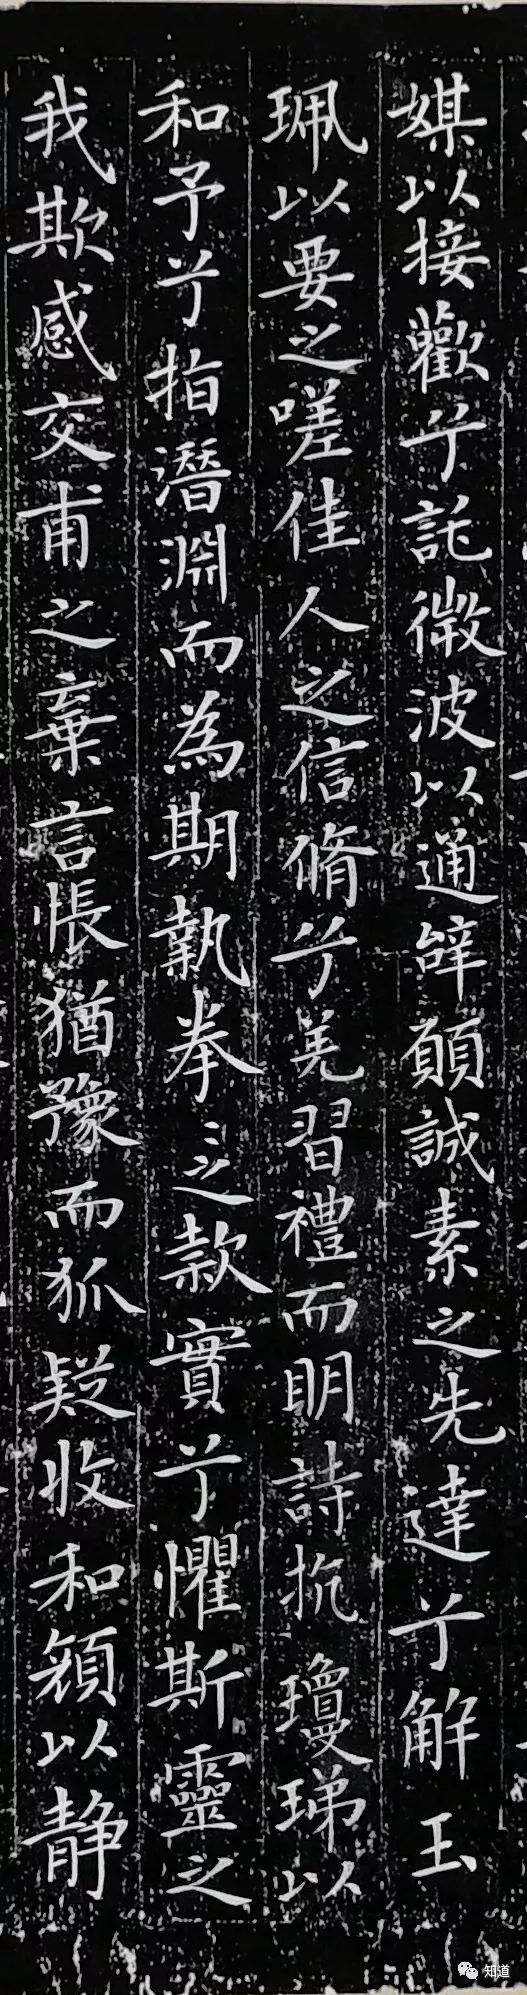 媒以接歡兮託微波以通辭願誠素之先達兮解玉
珮以要之嗟佳人之信脩兮羌習禮而明詩抗瓊珶以
和予兮指潛淵而為期執拳〻之款實兮懼斯靈之
我欺感交甫之棄言悵猶豫而狐疑收和顏以静
知道